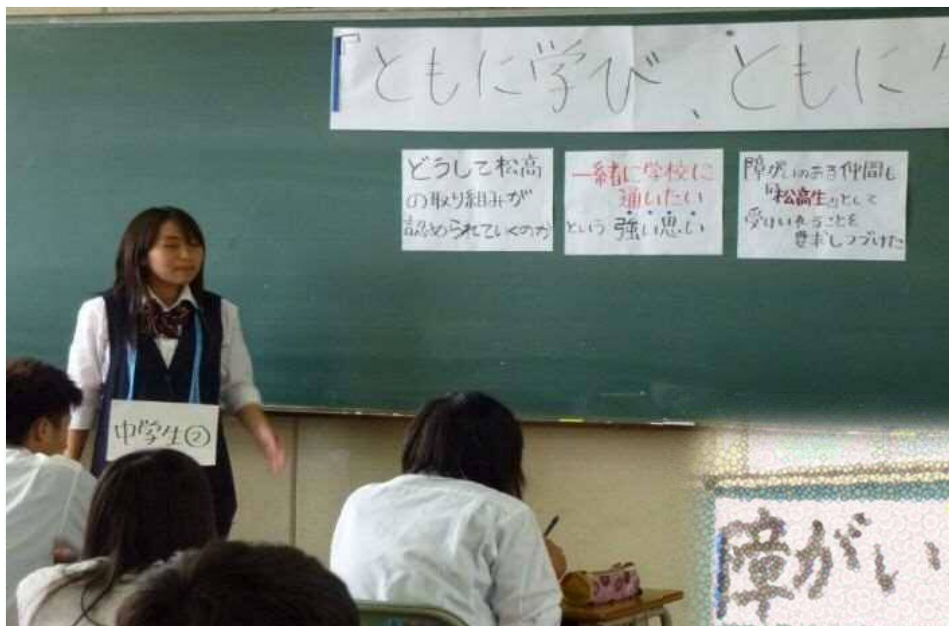 『ともに学び、ともに
どうして松高
の取り組みが
認められていくのか
一緒に学校に
通いたい
という強い思い
障がいのある仲間も
"松高生"として
受け入れることを
要求しつづけた
中学生②
障がい